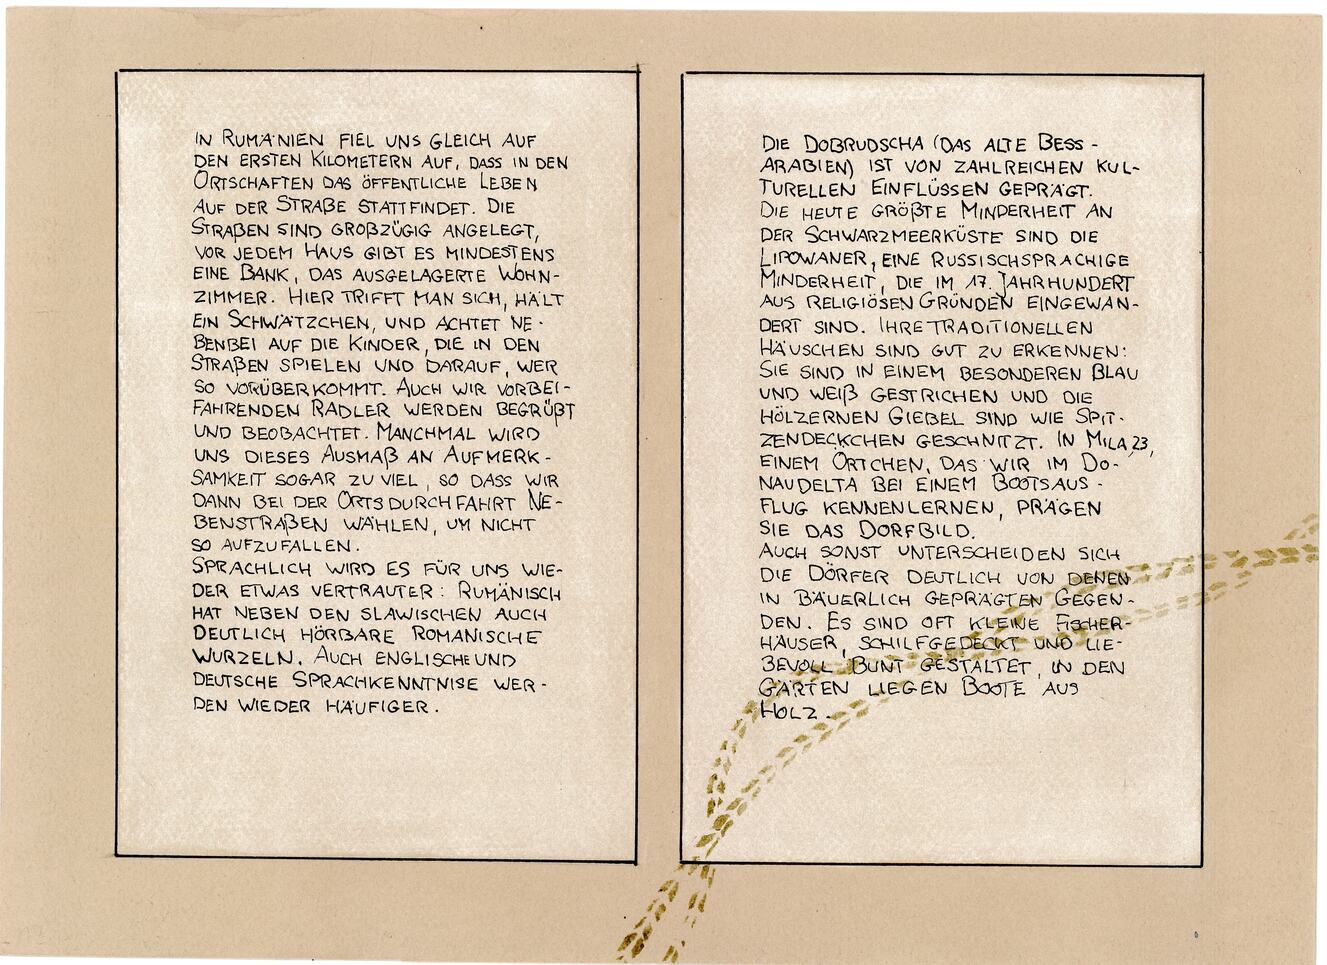 IN RUMÄNIEN FIEL UNS GLEICH AUF
DEN ERSTEN KILOMETERN AUF, DASS IN DEN
ORTSCHAFTEN DAS ÖFFENTLICHE LEBEN
AUF DER STRAßE STATTFINDET. DIE
STRAßEN SIND GROßZÜGIG ANGELEGT,
VOR JEDEM HAUS GIBT ES MINDESTENS
EINE BANK, DAS AUSGELAGERTE WOHN-
ZIMMER. HIER TRIFFT MAN SICH, HÄLT
EIN SCHWÄTZCHEN, UND ACHTET NE-
BENBEI AUF DIE KINDER, DIE IN DEN
STRAßEN SPIELEN UND DARAUF, WER
SO VORÜBERKOMMT. AUCH WIR VORBEI-
FAHRENDEN RADLER WERDEN BEGRÜßT
UND BEOBACHTET. MANCHMAL WIRD
UNS DIESES AUSMAß AN AUFMERK-
SAMKEIT SOGAR ZU VIEL, SO DASS WIR
DANN BEI DER ORTSDURCHFAHRT NE-
BENSTRAßEN WÄHLEN, UM NICHT
SO AUFZUFALLEN.
SPRACHLICH WIRD ES FÜR UNS WIE-
DER ETWAS VERTRAUTER: RUMÄNISCH
HAT NEBEN DEN SLAWISCHEN AUCH
DEUTLICH HÖRBARE ROMANISCHE
WURZELN. AUCH ENGLISCHE UND
DEUTSCHE SPRACHKENNTNISE WER-
DEN WIEDER HÄUFIGER.
DIE DOBRUDSCHA (DAS ALTE BESS-
ARABIEN) IST VON ZAHLREICHEN KUL-
TURELLEN EINFLÜSSEN GEPRÄGT.
DIE HEUTE GRÖßTE MINDERHEIT AN
DER SCHWARZMEERKÜSTE SIND DIE
LIPOWANER, EINE RUSSISCHSPRACHIGE
MINDERHEIT, DIE IM 17. JAHRHUNDERT
AUS RELIGIÖSEN GRÜNDEN EINGEWAN-
DERT SIND. IHRE TRADITIONELLEN
HÄUSCHEN SIND GUT ZU ERKENNEN:
SIE SIND IN EINEM BESONDEREN BLAU
UND WEIß GESTRICHEN UND DIE
HÖLZERNEN GIEBEL SIND WIE SPIT-
ZENDECKCHEN GESCHNITZT. IN MILA 23,
EINEM ÖRTCHEN, DAS WIR IM DO-
NAUDELTA BEI EINEM BOOTSAUS-
FLUG KENNENLERNEN, PRÄGEN
SIE DAS DORFBILD.
AUCH SONST UNTERSCHEIDEN SICH
DIE DÖRFER DEUTLICH VON DENEN
IN BÄUERLICH GEPRÄGTEN GEGEN-
DEN. ES SIND OFT KLEINE FISCHER-
HÄUSER, SCHILFGEDECKT UND LIE-
BEVOLL BUNT GESTALTET, IN DEN
GÄRTEN LIEGEN BOOTE AUS
HOLZ.